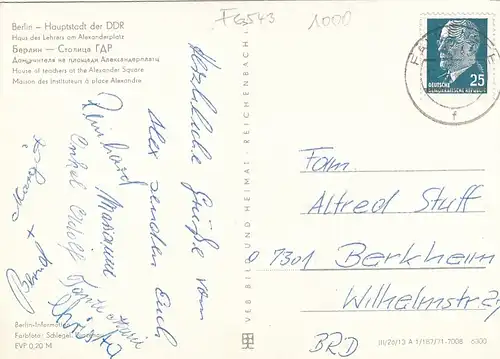 Berlin — Hauptstadt der DDR
Haus des Lehrers am Alexanderplatz
Берлин — Столица ГДР
House of teachers at the Alexander Square
Maison des Instituteurs à place Alexandre
FG543
1000
Herzliche Grüße vom
Alex senden Euch
Reinhard Marianne
Onkel
Tante
Christa
VEB BILD UND HEIMAT · REICHENBACH
DEUTSCHE
DEMOKRATISCHE REPUBLIK
25
f
Fam.
Alfred Stuff
7301 Berkheim
Wilhelmstraß
BRD
Berlin-Information
Farbfoto: Schlegel,
EVP 0,20 M
III/26/13 A 1/187/71-7008 6300